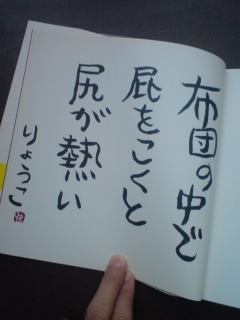 布団の中で
屁をこくと
尻が熱い
りょうこ